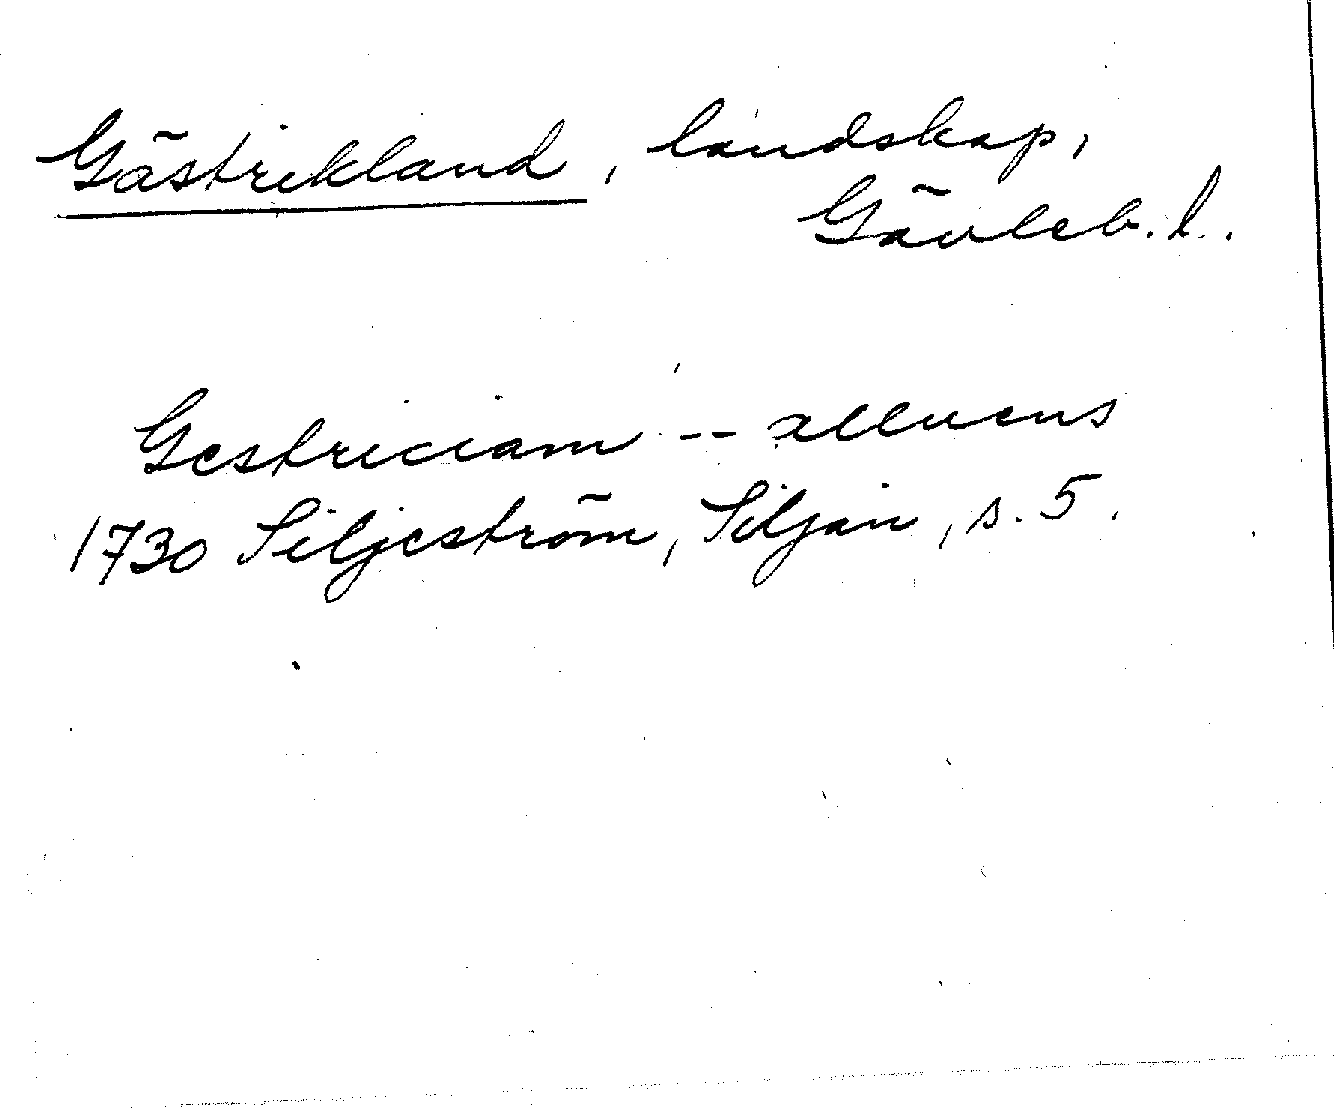 Gästrikland, landskap,
Gävleb. l.
Gestriciam -- alluens
1730 Siljeström, Siljan, s. 5.